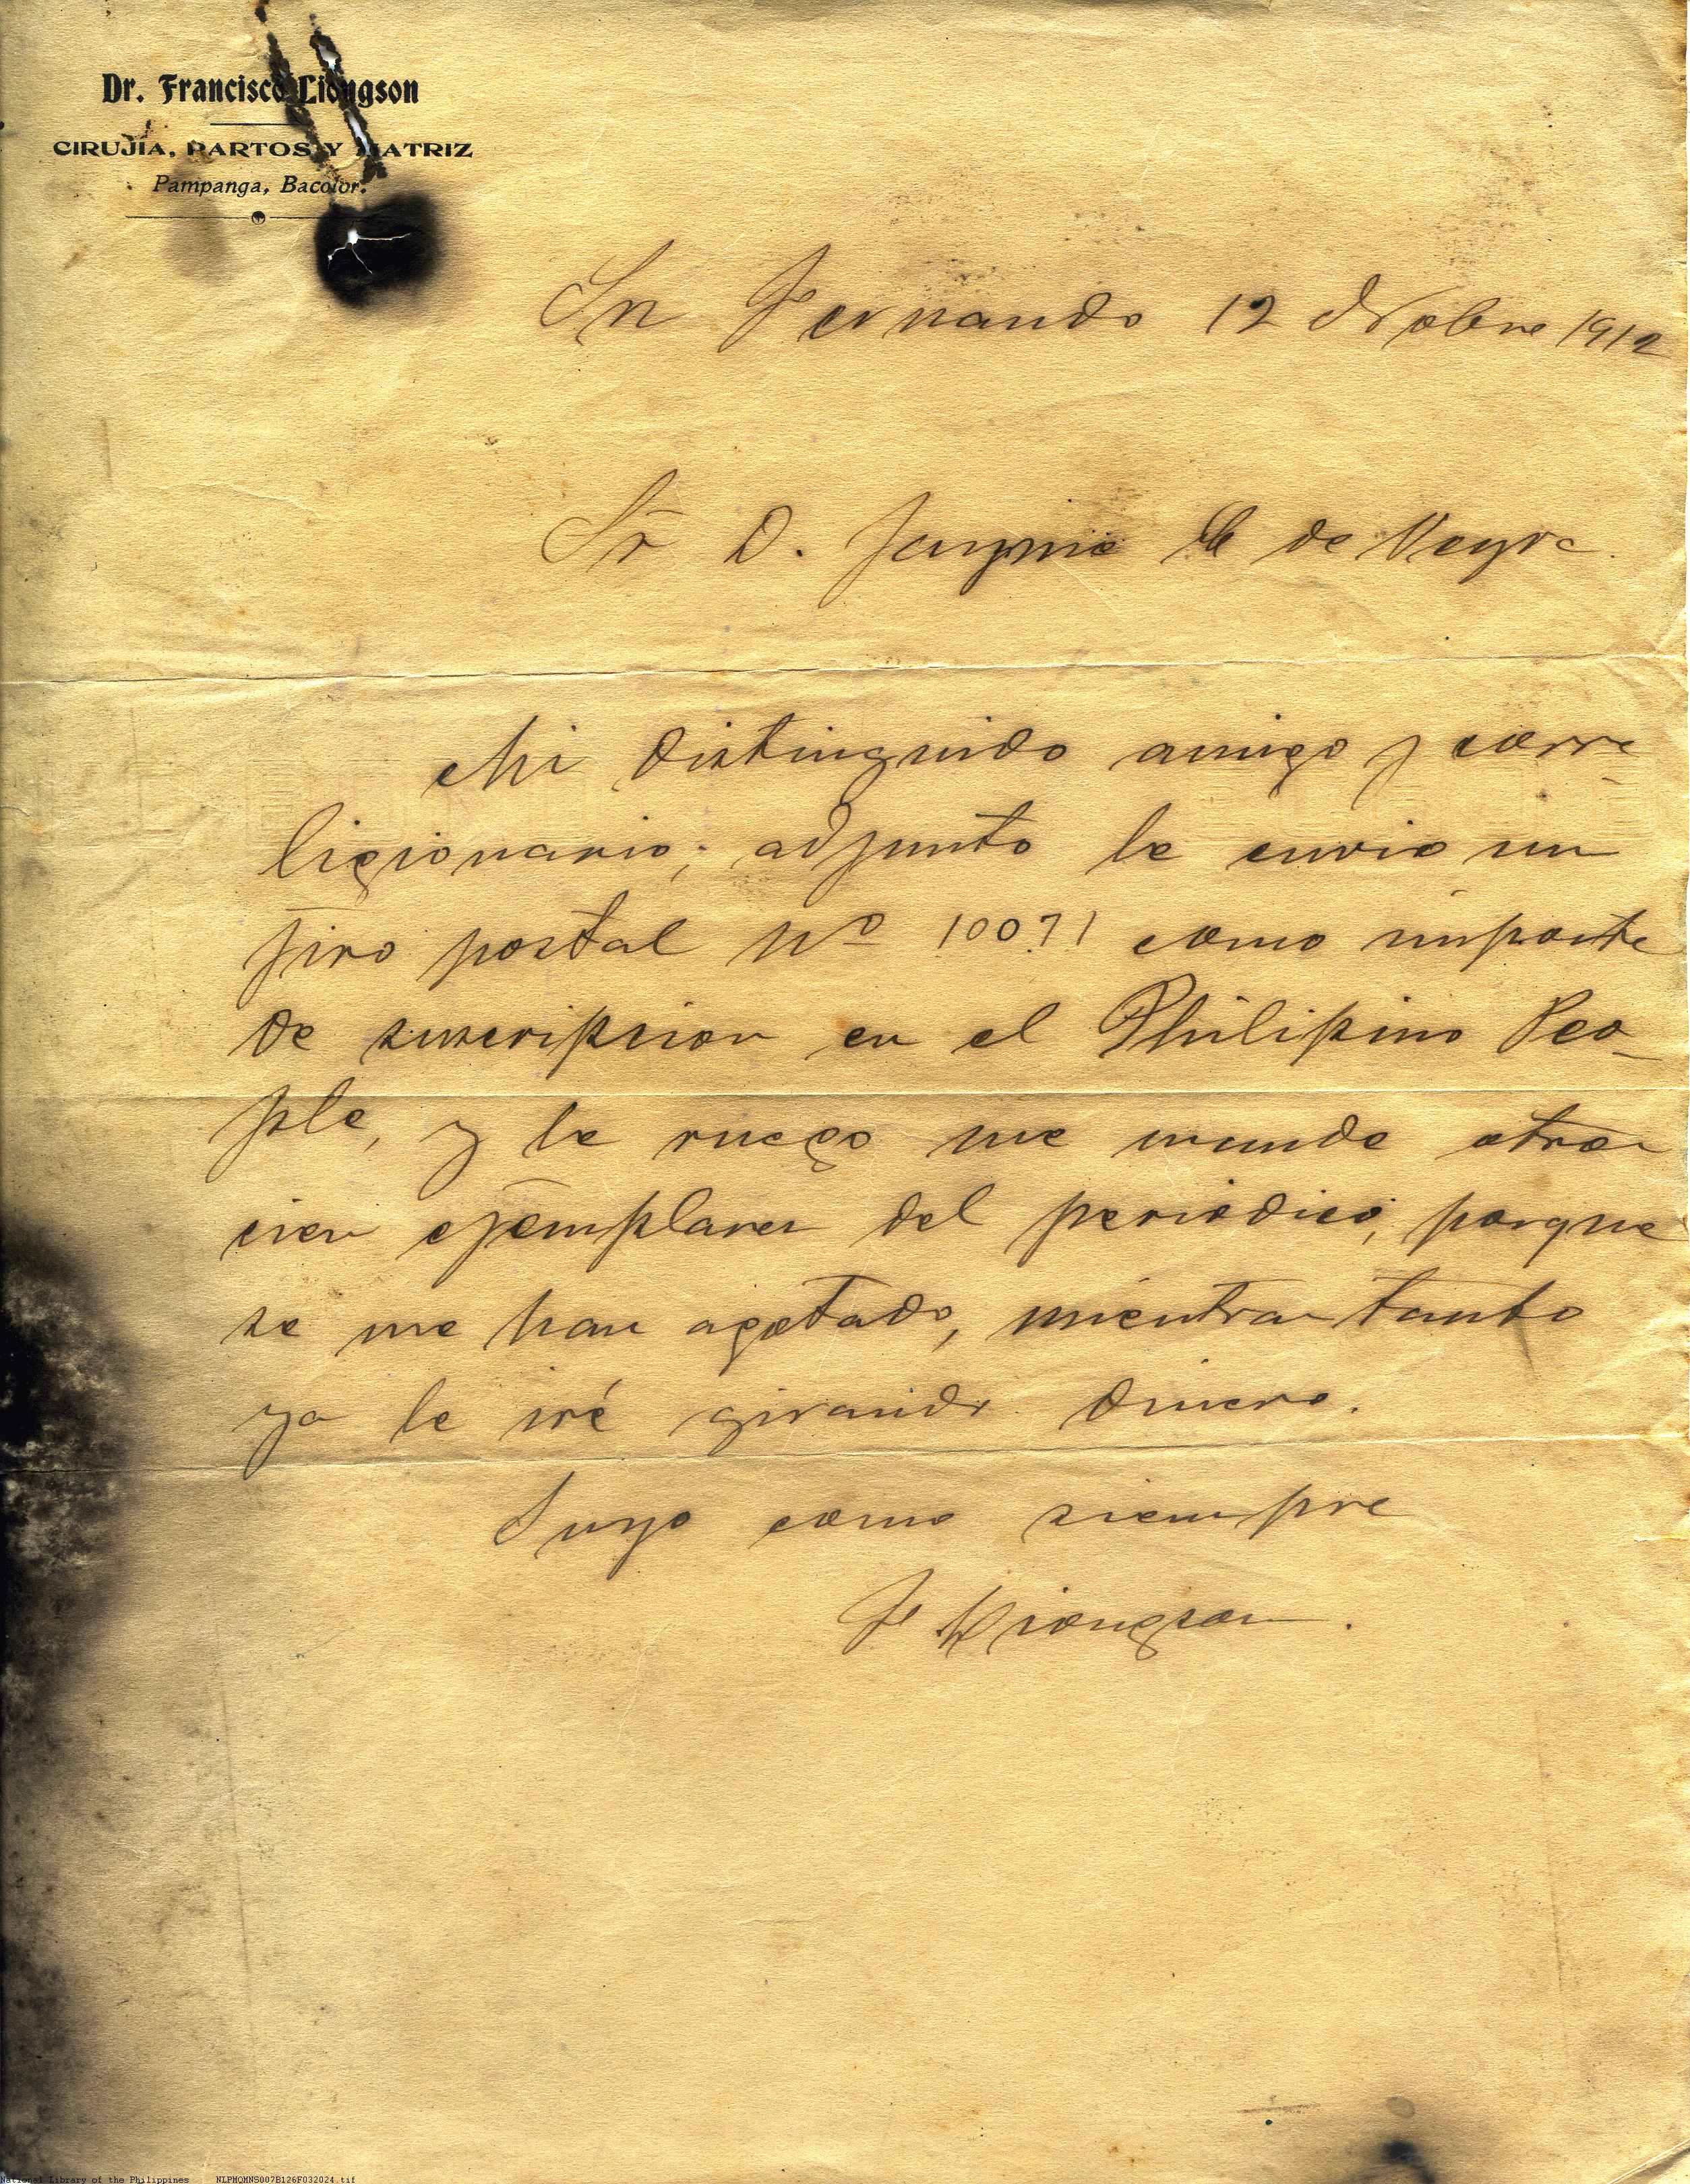 Dr. Francisco Liongson
CIRUJÍA, PARTOS Y MATRIZ
Pampanga, Bacolor.
Sn Fernando 12 Nobre 1912
Sr D. Jayme C de Veyra.
Mi distinguido amigo y corre
ligionario; adjunto le envio un
giro postal Nº 10071 como importe
de suscripcion en el Philipino Peo-
ple, y le ruego me mande otros
cien ejemplares del periodico, porque
se me han agotado, mientras tanto
ya le iré girando dinero.
Suyo como siempre
F Liongson.
National Library of the Philippines NLPMQMNS007B126F032024.tif